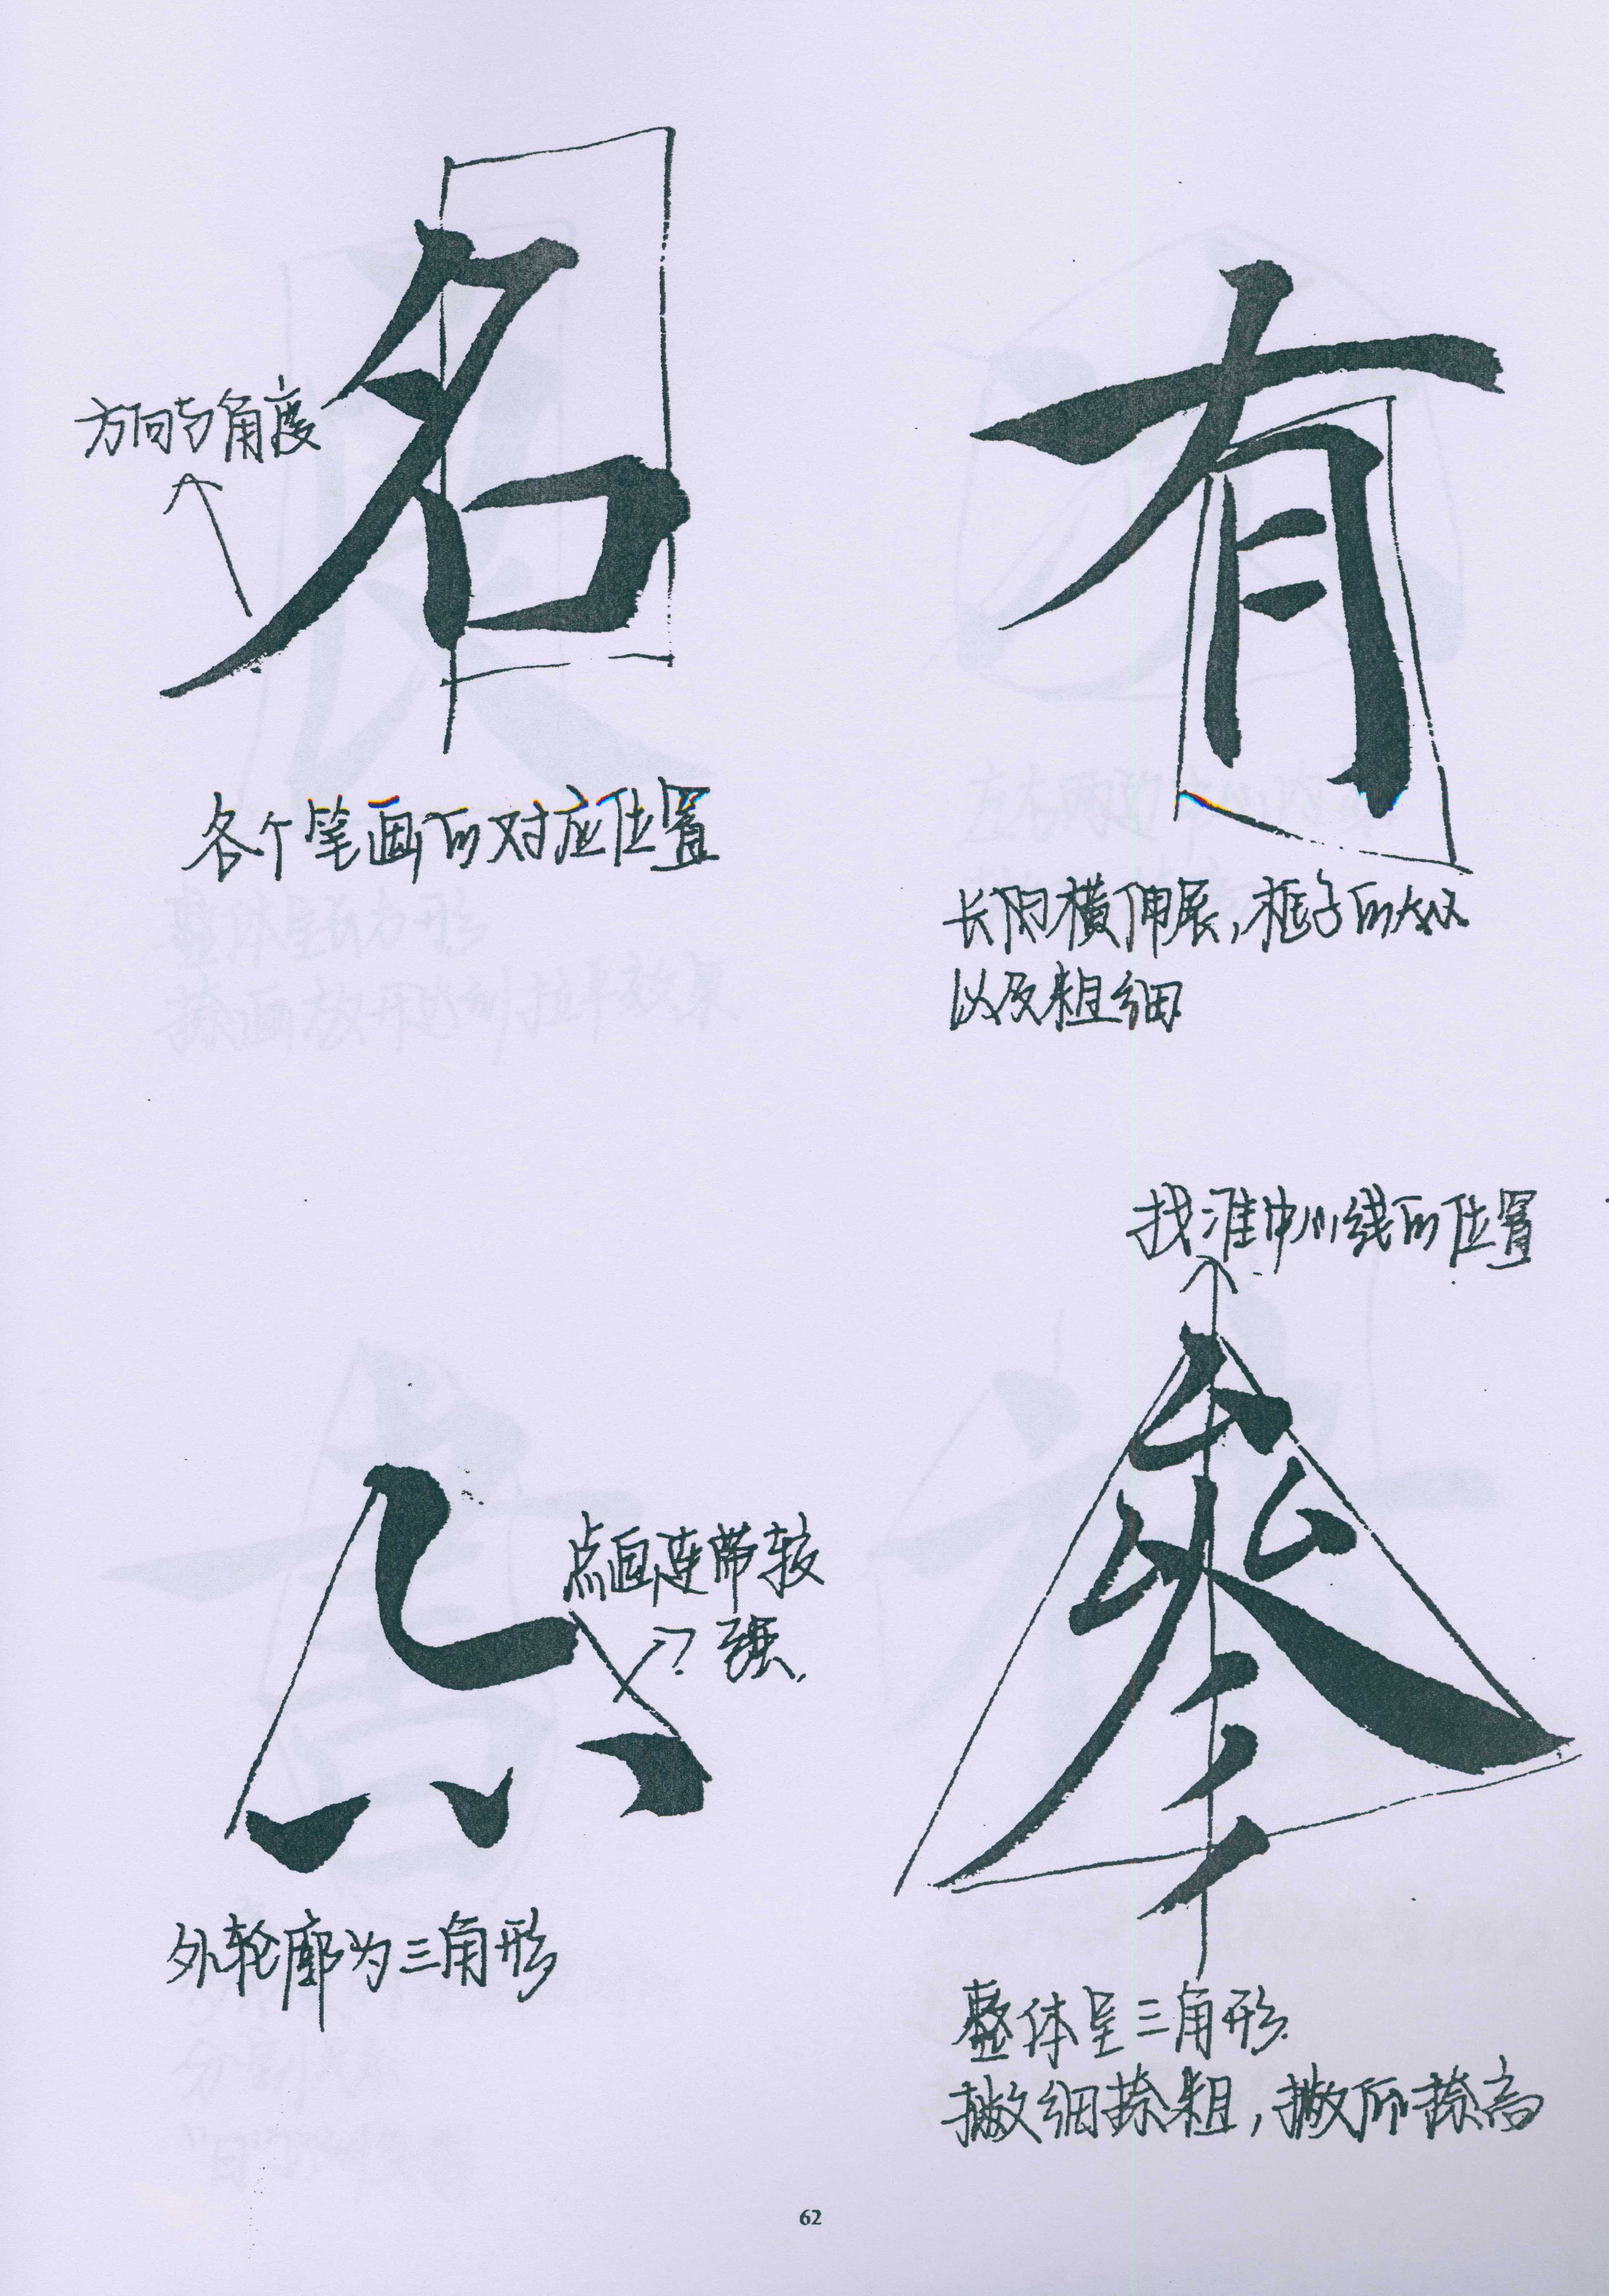 名
方向与角度
各个笔画的对应位置
有
长横伸展,框子的大小
以及粗细
点画连带较
强.
外轮廓为三角形
找准中心线的位置
參
整体呈三角形.
撇细捺粗,撇低捺高
62